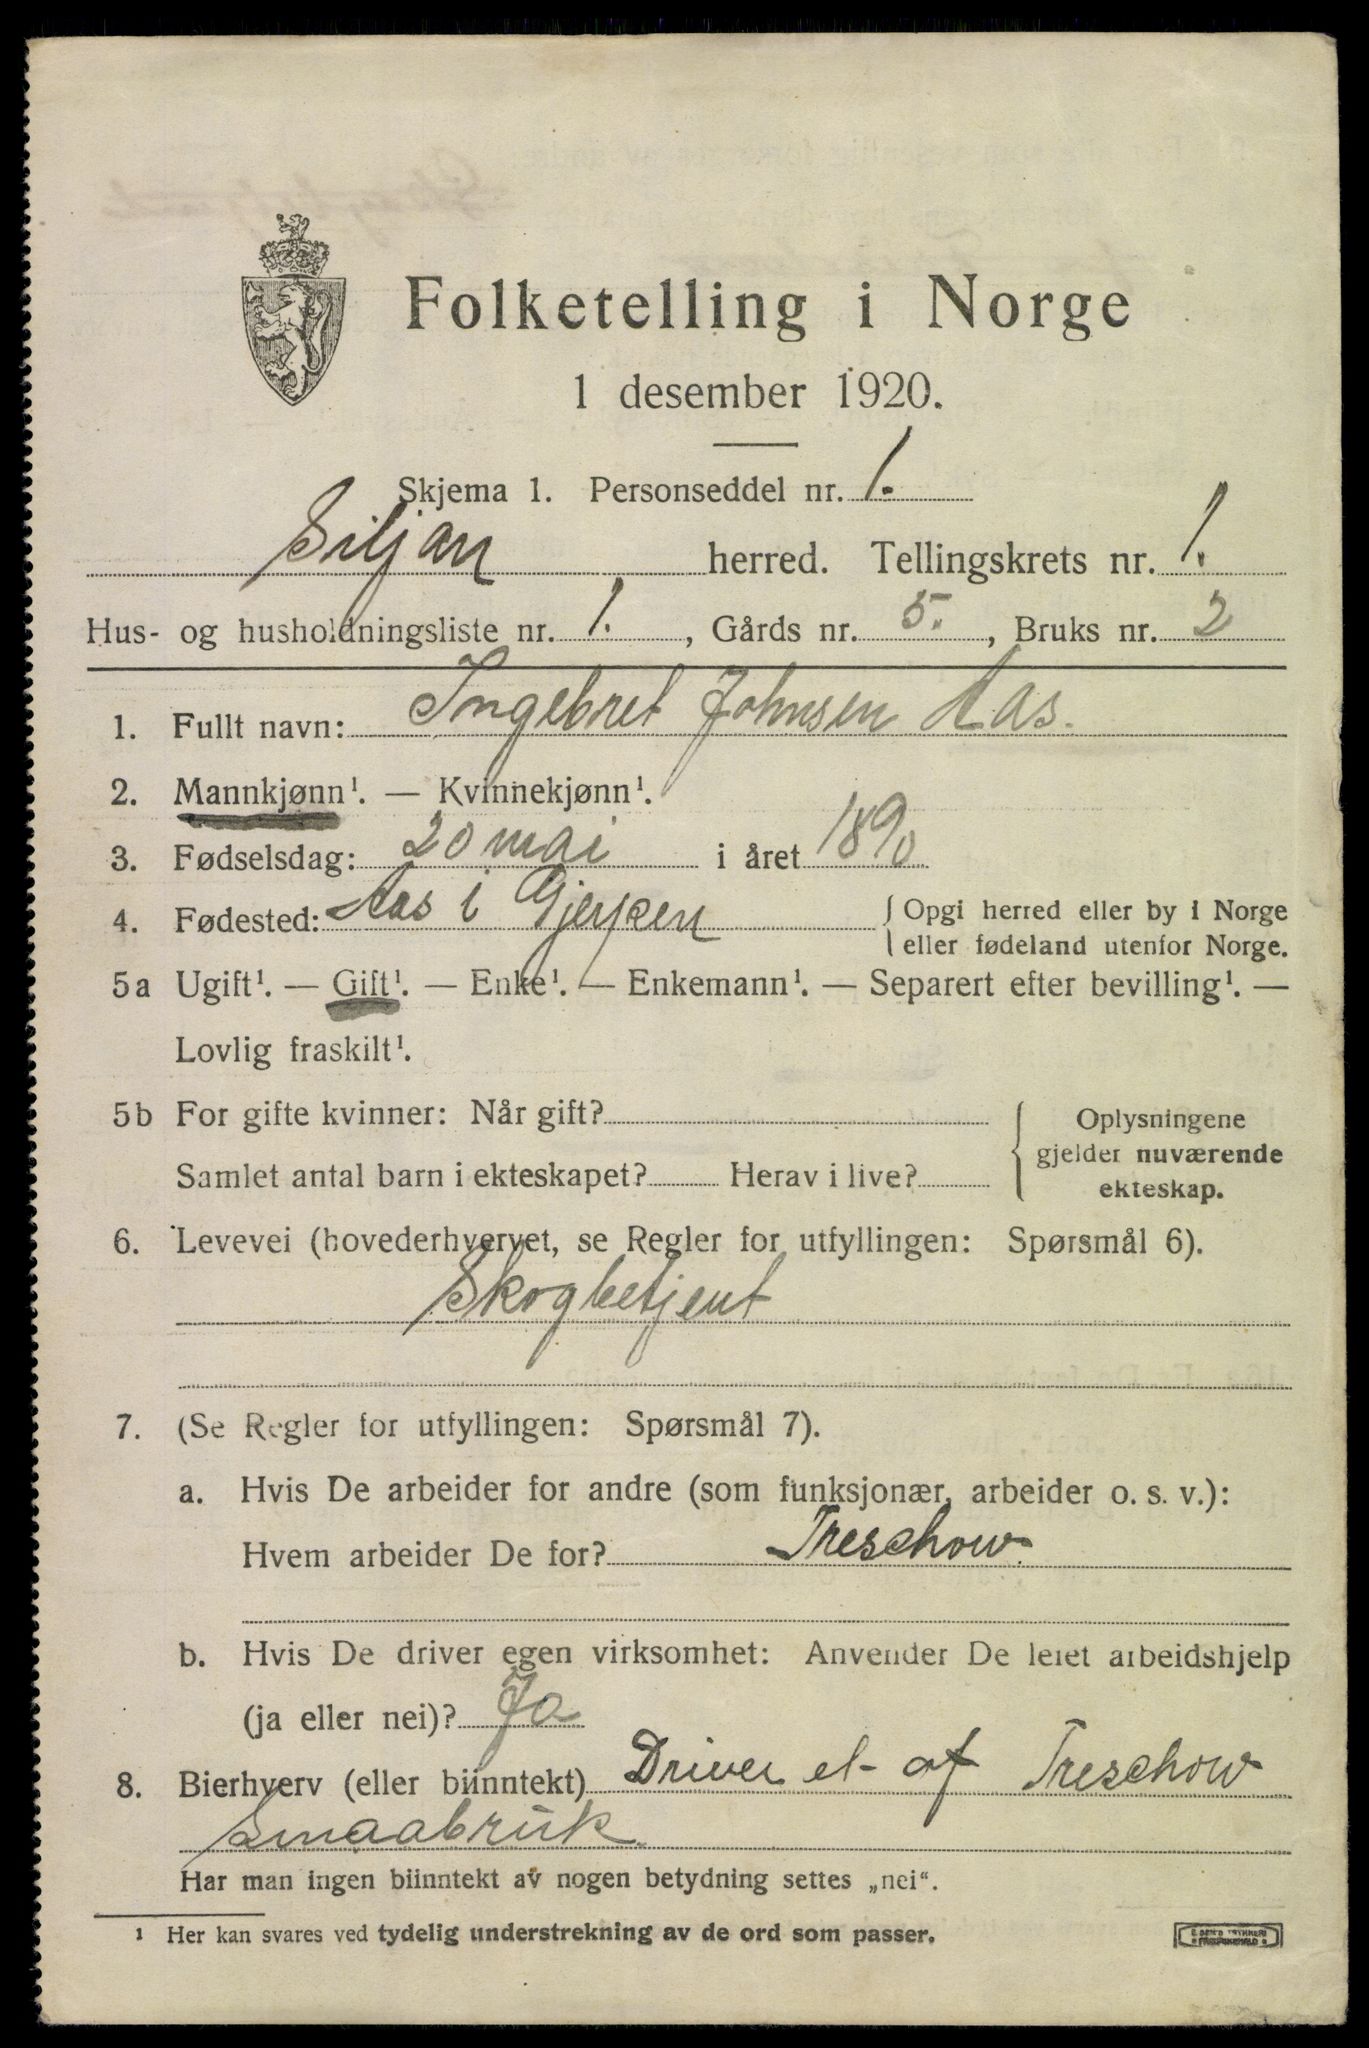 Folketelling i Norge
1 desember 1920.
Skjema 1. Personseddel nr. 1.
Siljan herred. Tellingskrets nr. 1.
Hus- og husholdningsliste nr. 1. , Gårds nr. 5. , Bruks nr. 2
1. Fullt navn: Ingebret Johnsen Aas.
2. Mannkjønn¹. — Kvinnekjønn¹.
3. Fødselsdag: 20 mai i året 1890
4. Fødested: Aas i Gjerpen { Opgi herred eller by i Norge
eller fødeland utenfor Norge.
5a Ugift¹. — Gift¹. — Enke¹. — Enkemann¹. — Separert efter bevilling¹. —
Lovlig fraskilt¹.
5b For gifte kvinner: Når gift? { Oplysningene
gjelder nuværende
Samlet antal barn i ekteskapet? Herav i live? ekteskap.
6. Levevei (hovederhvervet, se Regler for utfyllingen: Spørsmål 6).
Skogbetjent
7. (Se Regler for utfyllingen: Spørsmål 7).
a. Hvis De arbeider for andre (som funksjonær, arbeider o. s. v.):
Hvem arbeider De for? Treschow.
b. Hvis De driver egen virksomhet: Anvender De leiet arbeidshjelp
(ja eller nei)? Ja
8. Bierhverv (eller biinntekt) Driver et af Treschow
Smaabruk.
Har man ingen biinntekt av nogen betydning settes „nei“.
¹ Her kan svares ved tydelig understrekning av de ord som passer.